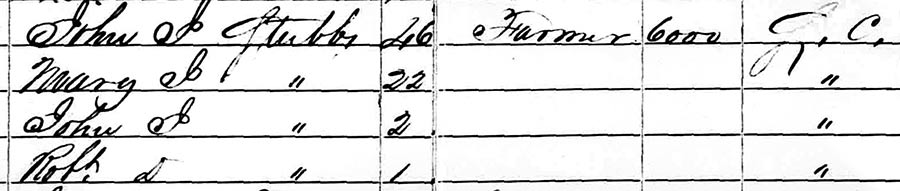 John I Stubbs 46 Farmer 6000 C.
Mary I " 22 "
John I " 2 "
Robt. D " 1 "